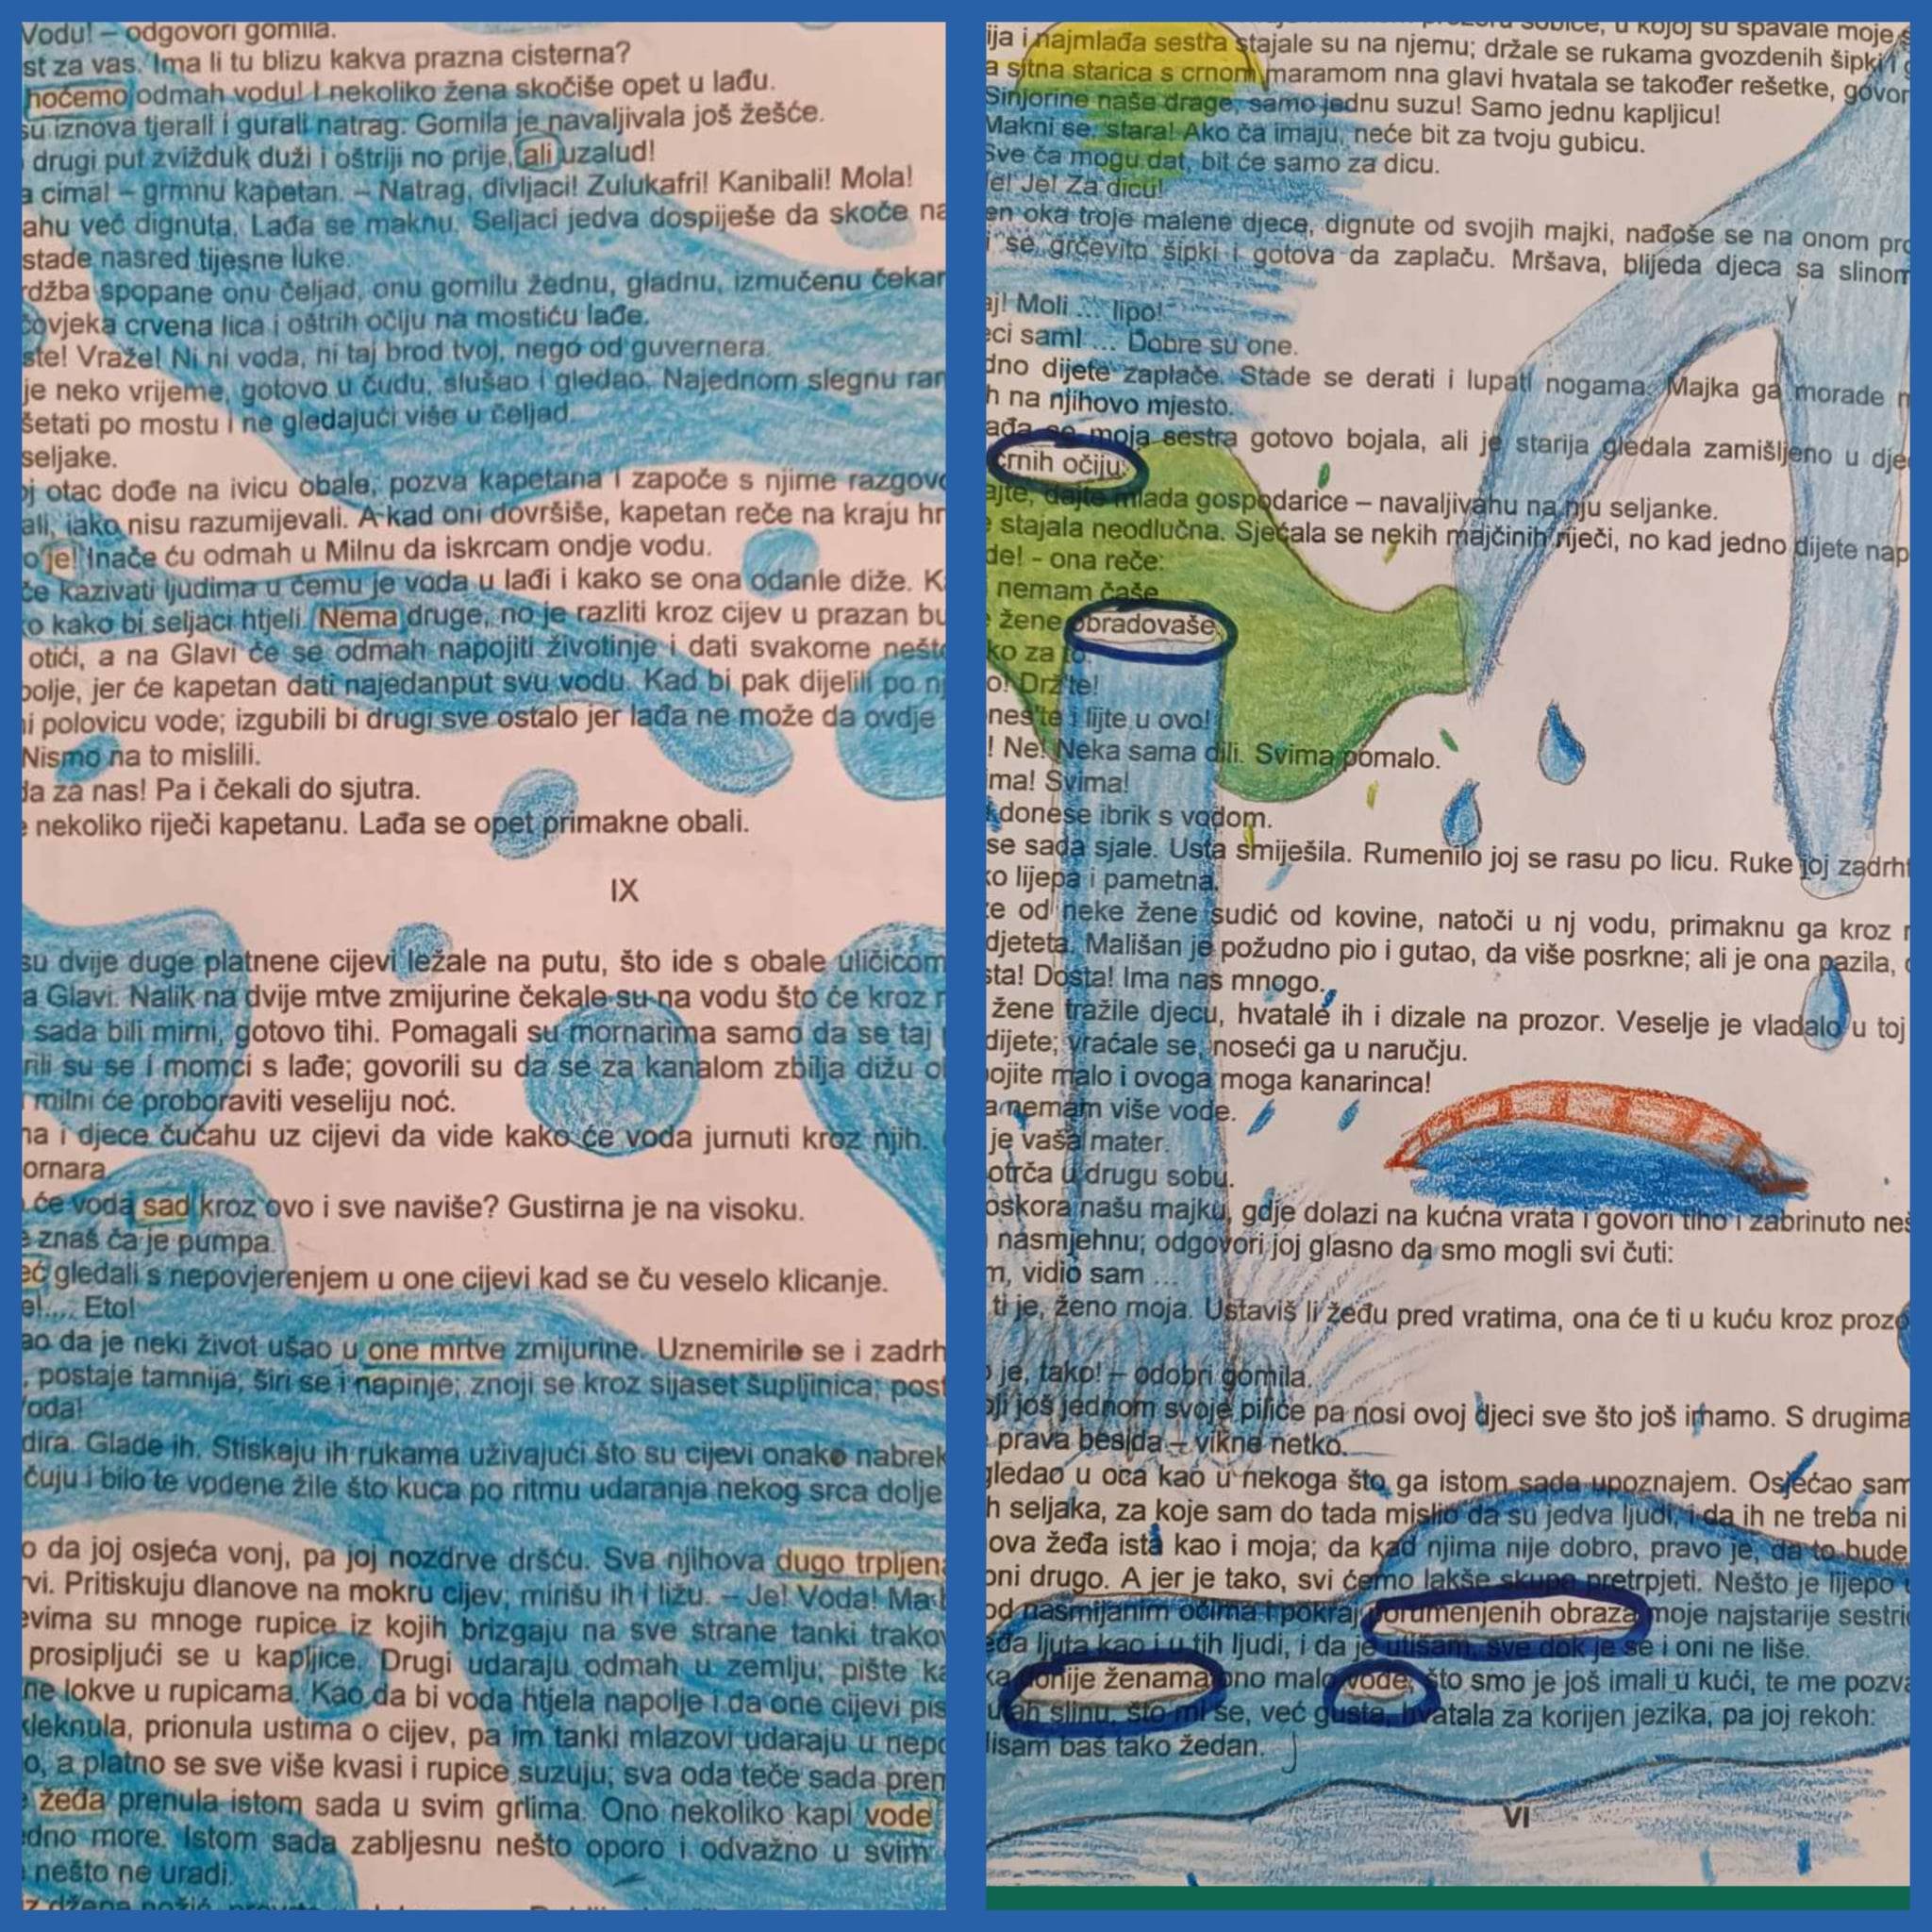 Vodu! – odgovori gomila.
st za vas. Ima li tu blizu kakva prazna cisterna?
hoćemo odmah vodu! I nekoliko žena skočiše opet u lađu.
su iznova tjerali i gurali natrag. Gomila je navaljivala još žešće.
drugi put zvižduk duži i oštriji no prije, ali uzalud!
a cima! – grmnu kapetan. – Natrag, divljaci! Zulukafri! Kanibali! Mola!
ahu već dignuta. Lađa se maknu. Seljaci jedva dospiješe da skoče na
stade nasred tijesne luke.
džba spopane onu čeljad, onu gomilu žednu, gladnu, izmučenu čekan
čovjeka crvena lica i oštrih očiju na mostiću lađe.
ste! Vraže! Ni ni voda, ni taj brod tvoj, nego od guvernera.
je neko vrijeme, gotovo u čudu, slušao i gledao. Najednom slegnu ram
šetati po mostu i ne gledajući više u čeljad.
seljake.
oj otac dođe na ivicu obale, pozva kapetana i započe s njime razgovo
ali, iako nisu razumijevali. A kad oni dovršiše, kapetan reče na kraju hr
o je! Inače ću odmah u Milnu da iskrcam ondje vodu.
če kazivati ljudima u čemu je voda u lađi i kako se ona odanle diže. K
o kako bi seljaci htjeli. Nema druge, no je razliti kroz cijev u prazan bu
otići, a na Glavi će se odmah napojiti životinje i dati svakome nešto
bolje, jer će kapetan dati najedanput svu vodu. Kad bi pak dijelili po nj
i polovicu vode; izgubili bi drugi sve ostalo jer lađa ne može da ovdje
Nismo na to mislili.
da za nas! Pa i čekali do sjutra.
e nekoliko riječi kapetanu. Lađa se opet primakne obali.
IX
su dvije duge platnene cijevi ležale na putu, što ide s obale uličicom
a Glavi. Nalik na dvije mtve zmijurine čekale su na vodu što će kroz n
sada bili mirni, gotovo tihi. Pomagali su mornarima samo da se taj
rili su se i momci s lađe; govorili su da se za kanalom zbilja dižu o
milni će proboraviti veseliju noć.
na i djece čučahu uz cijevi da vide kako će voda jurnuti kroz njih.
ornara.
će voda sad kroz ovo i sve naviše? Gustirna je na visoku.
e znaš ča je pumpa.
eć gledali s nepovjerenjem u one cijevi kad se ču veselo klicanje.
e!.... Eto!
ao da je neki život ušao u one mrtve zmijurine. Uznemirile se i zadrh
, postaje tamnija, širi se i napinje; znoji se kroz sijaset šupljinica; post
oda!
dira. Glade ih. Stiskaju ih rukama uživajući što su cijevi onako nabrek
čuju i bilo te vodene žile što kuca po ritmu udaranja nekog srca dolje
o da joj osjeća vonj, pa joj nozdrve dršću. Sva njihova dugo trpljena
vi. Pritiskuju dlanove na mokru cijev; mirišu ih i ližu. – Je! Voda! Ma
evima su mnoge rupice iz kojih brizgaju na sve strane tanki trakov
prosipljući se u kapljice. Drugi udaraju odmah u zemlju; pište ka
ne lokve u rupicama. Kao da bi voda htjela napolje i da one cijevi pis
kleknula, prionula ustima o cijev, pa im tanki mlazovi udaraju u nepc
o, a platno se sve više kvasi i rupice suzuju; sva oda teče sada prem
žeđa prenula istom sada u svim grlima. Ono nekoliko kapi vode
dno more. Istom sada zabljesnu nešto oporo i odvažno u svim
nešto ne uradi.
u kojoj su spavale moje s
ija i najmlađa sestra stajale su na njemu; držale se rukama gvozdenih šipki i g
a sitna starica s crnom maramom nna glavi hvatala se također rešetke, govor
Sinjorine naše drage, samo jednu suzu! Samo jednu kapljicu!
Makni se, stara! Ako ča imaju, neće bit za tvoju gubicu.
Sve ča mogu dat, bit će samo za dicu.
e! Je! Za dicu!
en oka troje malene djece, dignute od svojih majki, nađoše se na onom pro
i se grčevito šipki i gotova da zaplaču. Mršava, blijeda djeca sa slinom
aj! Moli ... lipo!
eci sam! ... Dobre su one.
dno dijete zaplače. Stade se derati i lupati nogama. Majka ga morade
h na njihovo mjesto.
ađa se moja sestra gotovo bojala, ali je starija gledala zamišljeno u dje
crnih očiju.
ajte, dajte mlada gospodarice – navaljivahu na nju seljanke.
e stajala neodlučna. Sjećala se nekih majčinih riječi, no kad jedno dijete nap
de! - ona reče:
nemam čaše
žene obradovaše
ko za to.
o! Drž'te!
nes'te i lijte u ovo!
! Ne! Neka sama dili. Svima pomalo.
ma! Svima!
donese ibrik s vodom.
se sada sjale. Usta smiješila. Rumenilo joj se rasu po licu. Ruke joj zadrht
ko lijepa i pametna.
e od neke žene sudić od kovine, natoči u nj vodu, primaknu ga kroz r
djeteta. Mališan je požudno pio i gutao, da više posrkne; ali je ona pazila,
sta! Dosta! Ima nas mnogo.
žene tražile djecu, hvatale ih i dizale na prozor. Veselje je vladalo u toj
dijete; vraćale se, noseći ga u naručju.
ojite malo i ovoga moga kanarinca!
a nemam više vode.
je vaša mater.
otrča u drugu sobu.
oskora našu majku, gdje dolazi na kućna vrata i govori tiho i zabrinuto neš
nasmjehnu; odgovori joj glasno da smo mogli svi čuti:
m, vidio sam ...
ti je, ženo moja. Ustaviš li žeđu pred vratima, ona će ti u kuću kroz prozo
o je, tako! – odobri gomila.
oji još jednom svoje piliće pa nosi ovoj djeci sve što još imamo. S drugima
prava besida – vikne netko.
gledao u oca kao u nekoga što ga istom sada upoznajem. Osjećao sam
h seljaka, za koje sam do tada mislio da su jedva ljudi, i da ih ne treba ni
ova žeđa ista kao i moja; da kad njima nije dobro, pravo je, da to bude
oni drugo. A jer je tako, svi ćemo lakše skupa pretrpjeti. Nešto je lijepo
od nasmijanim očima i pokraj porumenjenih obraza moje najstarije sestri
eđa ljuta kao i u tih ljudi, i da je utišam, sve dok je se i oni ne liše.
ka donije ženama ono malo vode, što smo je još imali u kući, te me pozva
utah slinu, što mi se, već gusta, hvatala za korijen jezika, pa joj rekoh:
nisam baš tako žedan.
VI